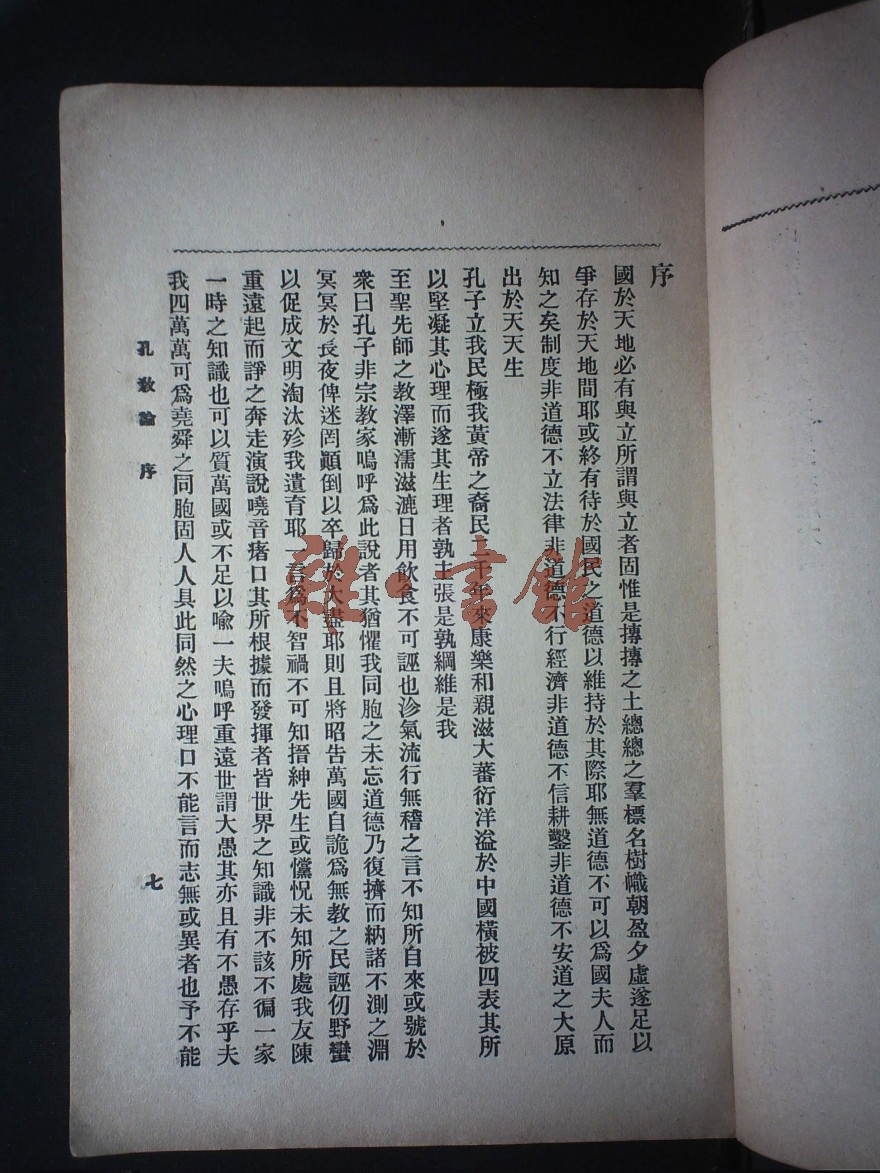 序
國於天地必有與立所謂與立者固惟是摶摶之土總總之羣標名樹幟朝盈夕虛遂足以
爭存於天地間耶或終有待於國民之道德以維持於其際耶無道德不可以爲國夫人而
知之矣制度非道德不立法律非道德不行經濟非道德不信耕鑿非道德不安道之大原
出於天天生
孔子立我民極我黃帝之裔民二千年來康樂和親滋大蕃衍洋溢於中國橫被四表其所
以堅凝其心理而遂其生理者孰主張是孰綱維是我
至聖先師之教澤漸濡滋漉日用飲食不可誣也沴氣流行無稽之言不知所自來或號於
衆曰孔子非宗教家嗚呼爲此說者其猶懼我同胞之未忘道德乃復擠而納諸不測之淵
冥冥於長夜俾迷罔顚倒以卒歸於大盡耶則且將昭告萬國自詭爲無教之民誣仞野蠻
以促成文明淘汰殄我遺育耶一言爲不智禍不可知搢紳先生或戃怳未知所處我友陳
重遠起而諍之奔走演說嘵音瘏口其所根據而發揮者皆世界之知識非不該不徧一家
一時之知識也可以質萬國或不足以喩一夫嗚呼重遠世謂大愚其亦且有不愚存乎夫
我四萬萬可爲堯舜之同胞固人人具此同然之心理口不能言而志無或異者也予不能
孔教論 序
七
雜·書館